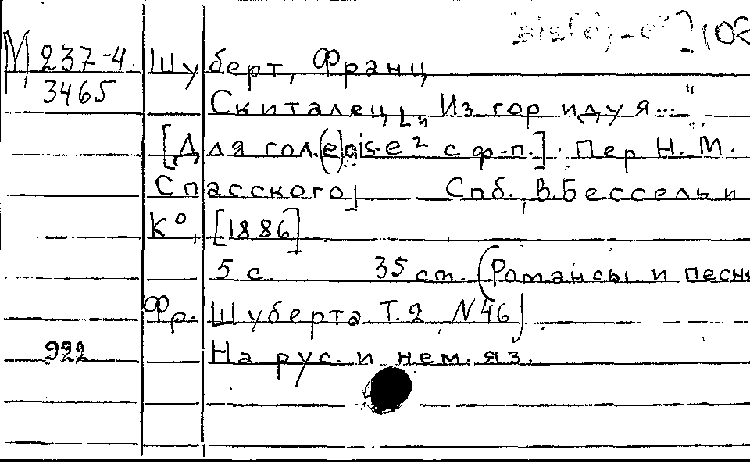 М 237-4
3465
Шуберт, Франц
Скиталец [„Из гор иду я..."
[Для гол.(e)ais-e² с ф-п.]. Пер Н. М.
Спасского] Спб., В. Бессель и
К⁰, [1886]
5 с. 35 cm. (Романсы и песни
Фр. Шуберта Т.2 N46)
922 На рус. и нем. яз.